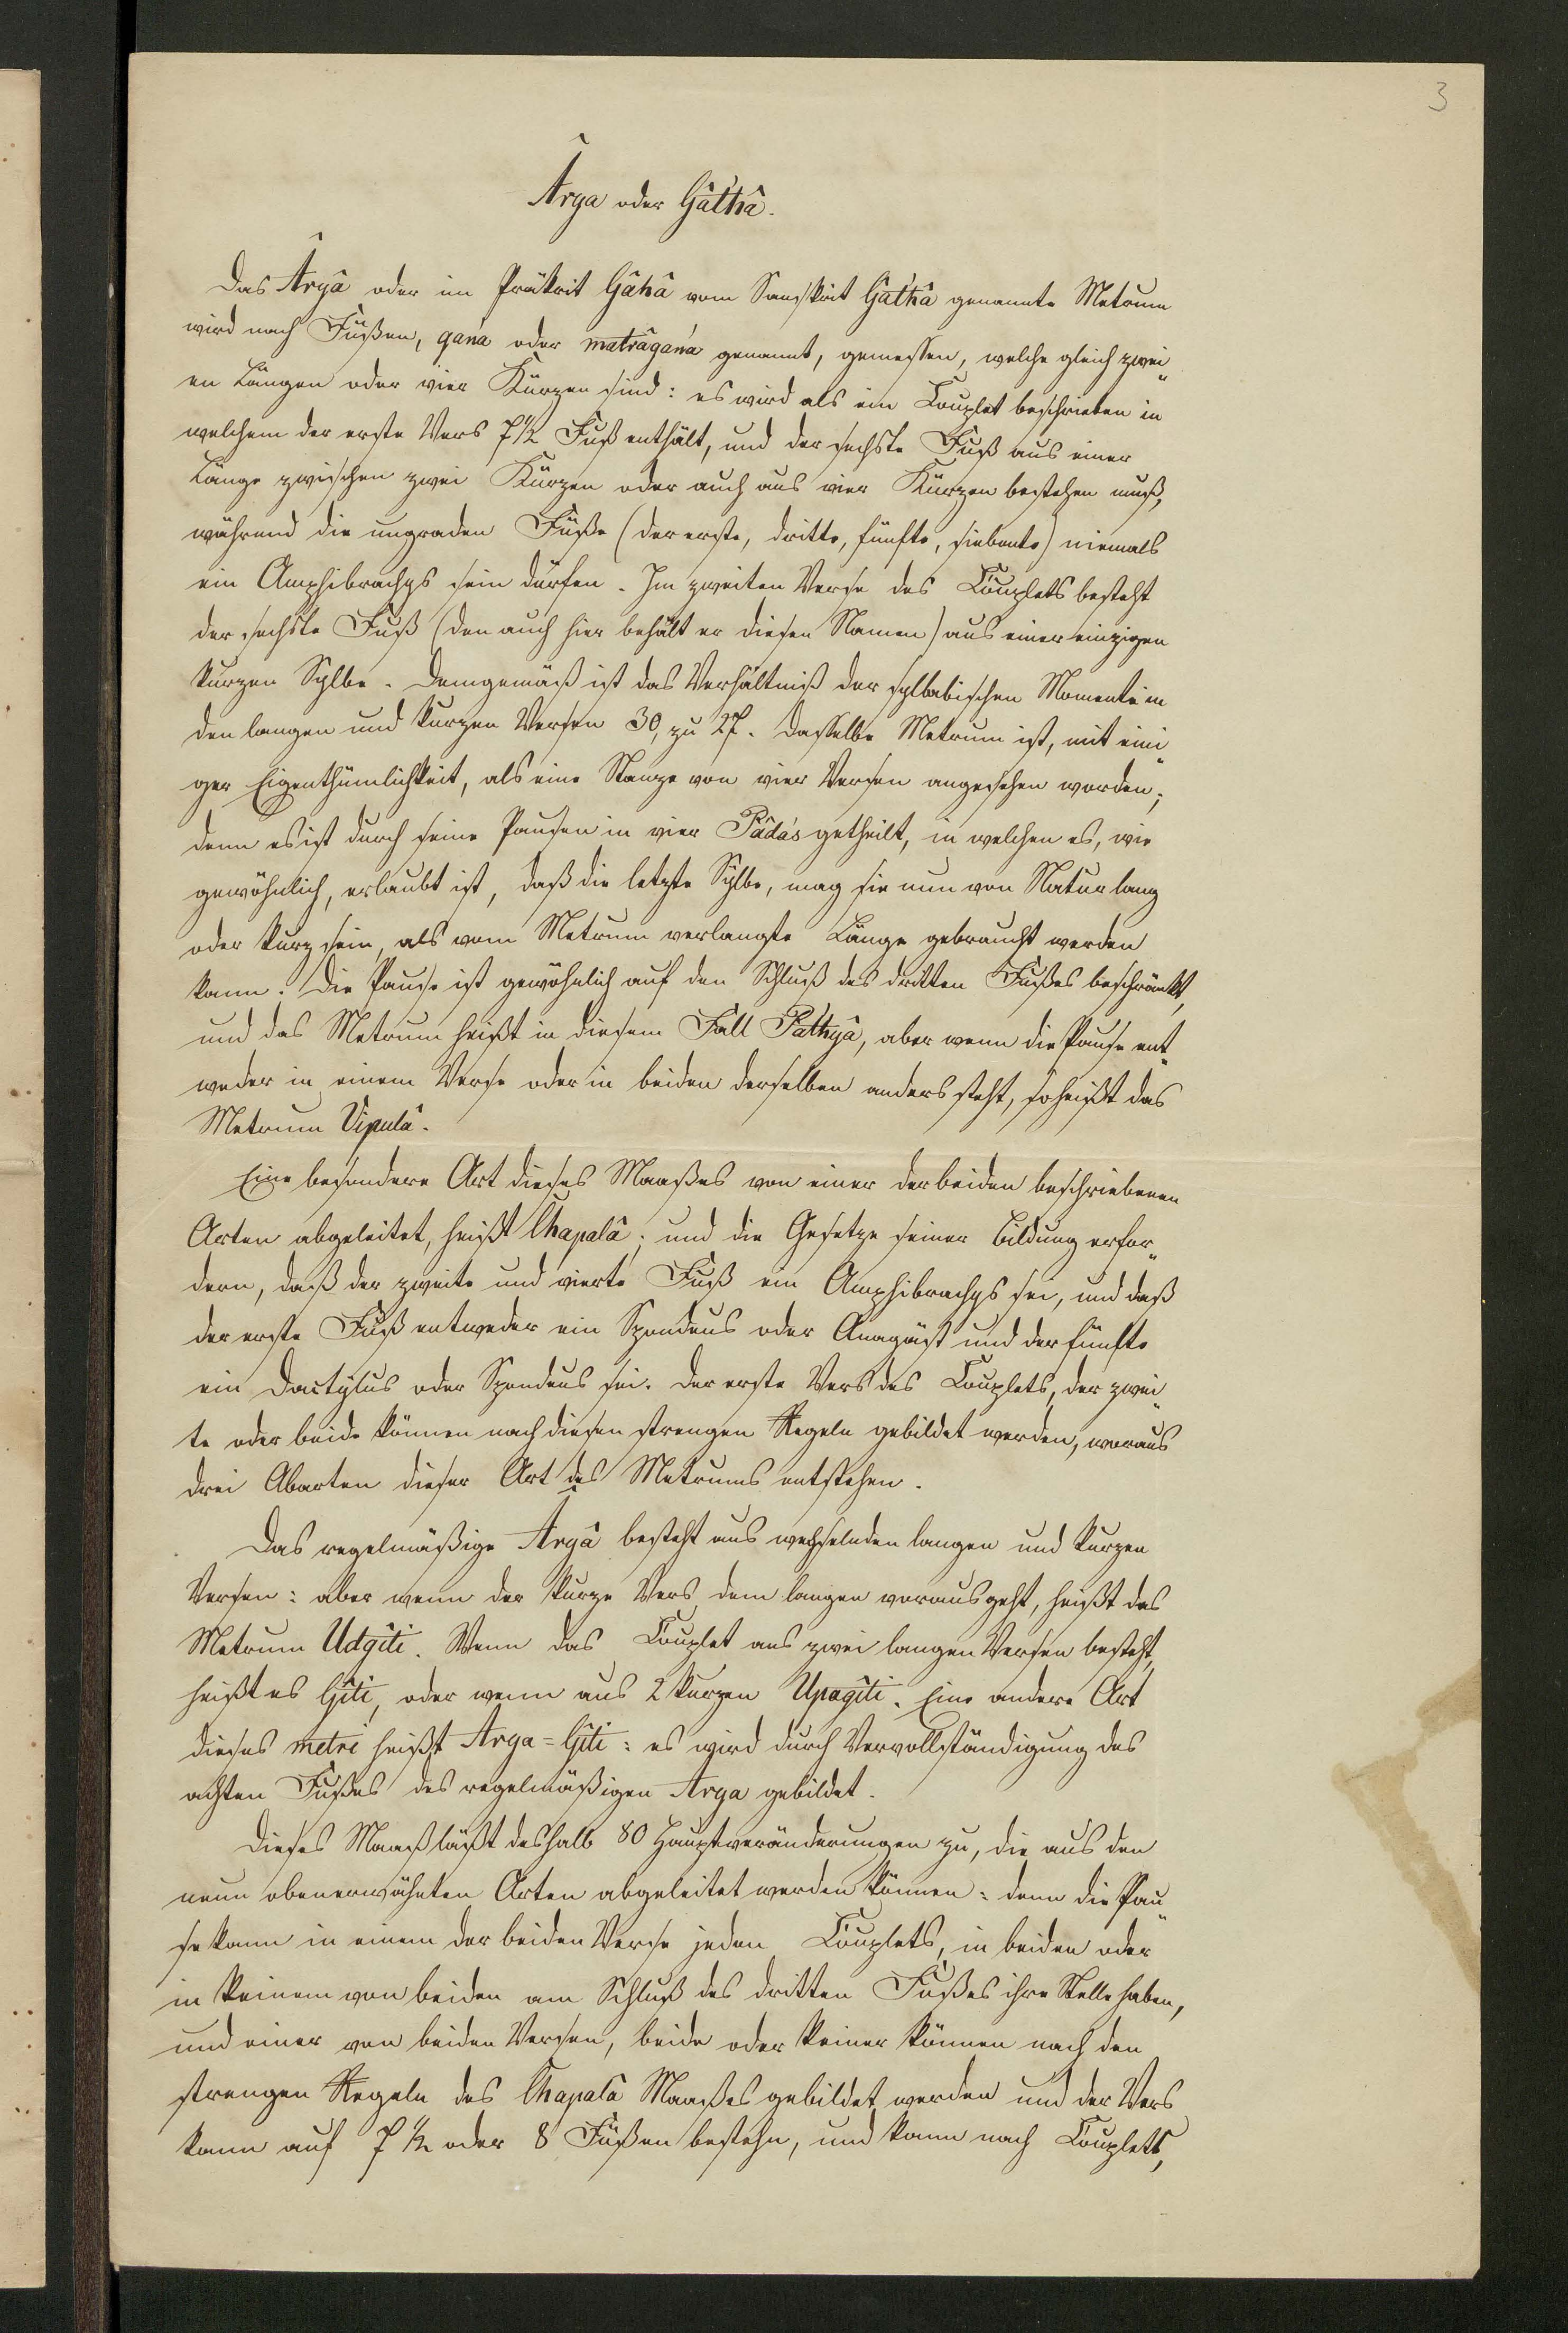 3
Ârya oder Gâthâ.
Das Âryâ oder im Präkrit Gâhâ vom Sanskrit Gathâ genannte Metrum
wird nach Füßen, gańa oder matrâgańa genannt, gemessen, welche gleich zwei„
en Längen oder vier Kürzen sind: es wird als ein Couplet beschrieben in
welchem der erste Vers 7 1/2 Fuß enthält, und der sechste Fuß aus einer
Länge zwischen zwei Kürzen oder auch aus vier Kürzen bestehen muß,
während die ungraden Füße (der erste, dritte, fünfte, siebente) niemals
ein Amphibrachys sein dürfen. Im zweiten Verse des Couplets besteht
der sechste Fuß (den auch hier behält er diesen Namen) aus einer einzigen
kurzen Sylbe. Demgemäß ist das Verhältniß der syllabischen Momente in
den langen und kurzen Versen 30, zu 27. Dasselbe Metrum ist, mit eini„
ger Eigenthümlichkeit, als eine Stanze von vier Versen angesehen worden;
denn es ist durch seine Pausen in vier Pâda's getheilt, in welchen es, wie
gewöhnlich, erlaubt ist, daß die letzte Sylbe, mag sie nun von Natur lang
oder kurz sein, als vom Metrum verlangte Länge gebraucht werden
kann. Die Pause ist gewöhnlich auf den Schluß des dritten Fußes beschränkt,
und das Metrum heißt in diesem Fall Pathyâ, aber wenn die Pause ent„
weder in einem Verse oder in beiden derselben anders steht, so heißt das
Metrum Vipulâ.
Eine besondere Art dieses Maaßes von einer der beiden beschriebenen
Arten abgeleitet, heißt Chapalâ; und die Gesetze seiner Bildung erfor„
dern, daß der zweite und vierte Fuß ein Amphibrachys sei, und daß
der erste Fuß entweder ein Spondeus oder Anapäst und der fünfte
ein Dactylus oder Spondeus sei. Der erste Vers des Couplets, der zwei„
te oder beide können nach diesen strengen Regeln gebildet werden, woraus
drei Abarten dieser Art des Metrums entstehen.
Das regelmäßige Âryâ besteht aus wechselnden langen und kurzen
Versen: aber wenn der kurze Vers dem langen vorausgeht, heißt das
Metrum Udgîti. Wenn das Couplet aus zwei langen Versen besteht,
heißt es Gîti, oder wenn aus 2 kurzen Upagîti. Eine andere Art
dieses metri heißt Arya=Gîti: es wird durch Vervollständigung des
achten Fußes des regelmäßigen Arya gebildet.
Dieses Maaß läßt deshalb 80 Hauptveränderungen zu, die aus den
neun obenerwähnten Arten abgeleitet werden können: denn die Pau„
se kann in einem der beiden Verse jeden Couplets, in beiden oder
in keinem von beiden am Schluß des dritten Fußes ihre Stelle haben,
und einer von beiden Versen, beide oder keiner können nach den
strengen Regeln des Chapalâ Maaßes gebildet werden und der Vers
kann auf 7 1/2 oder 8 Füßen bestehn, und kann nach Couplets,